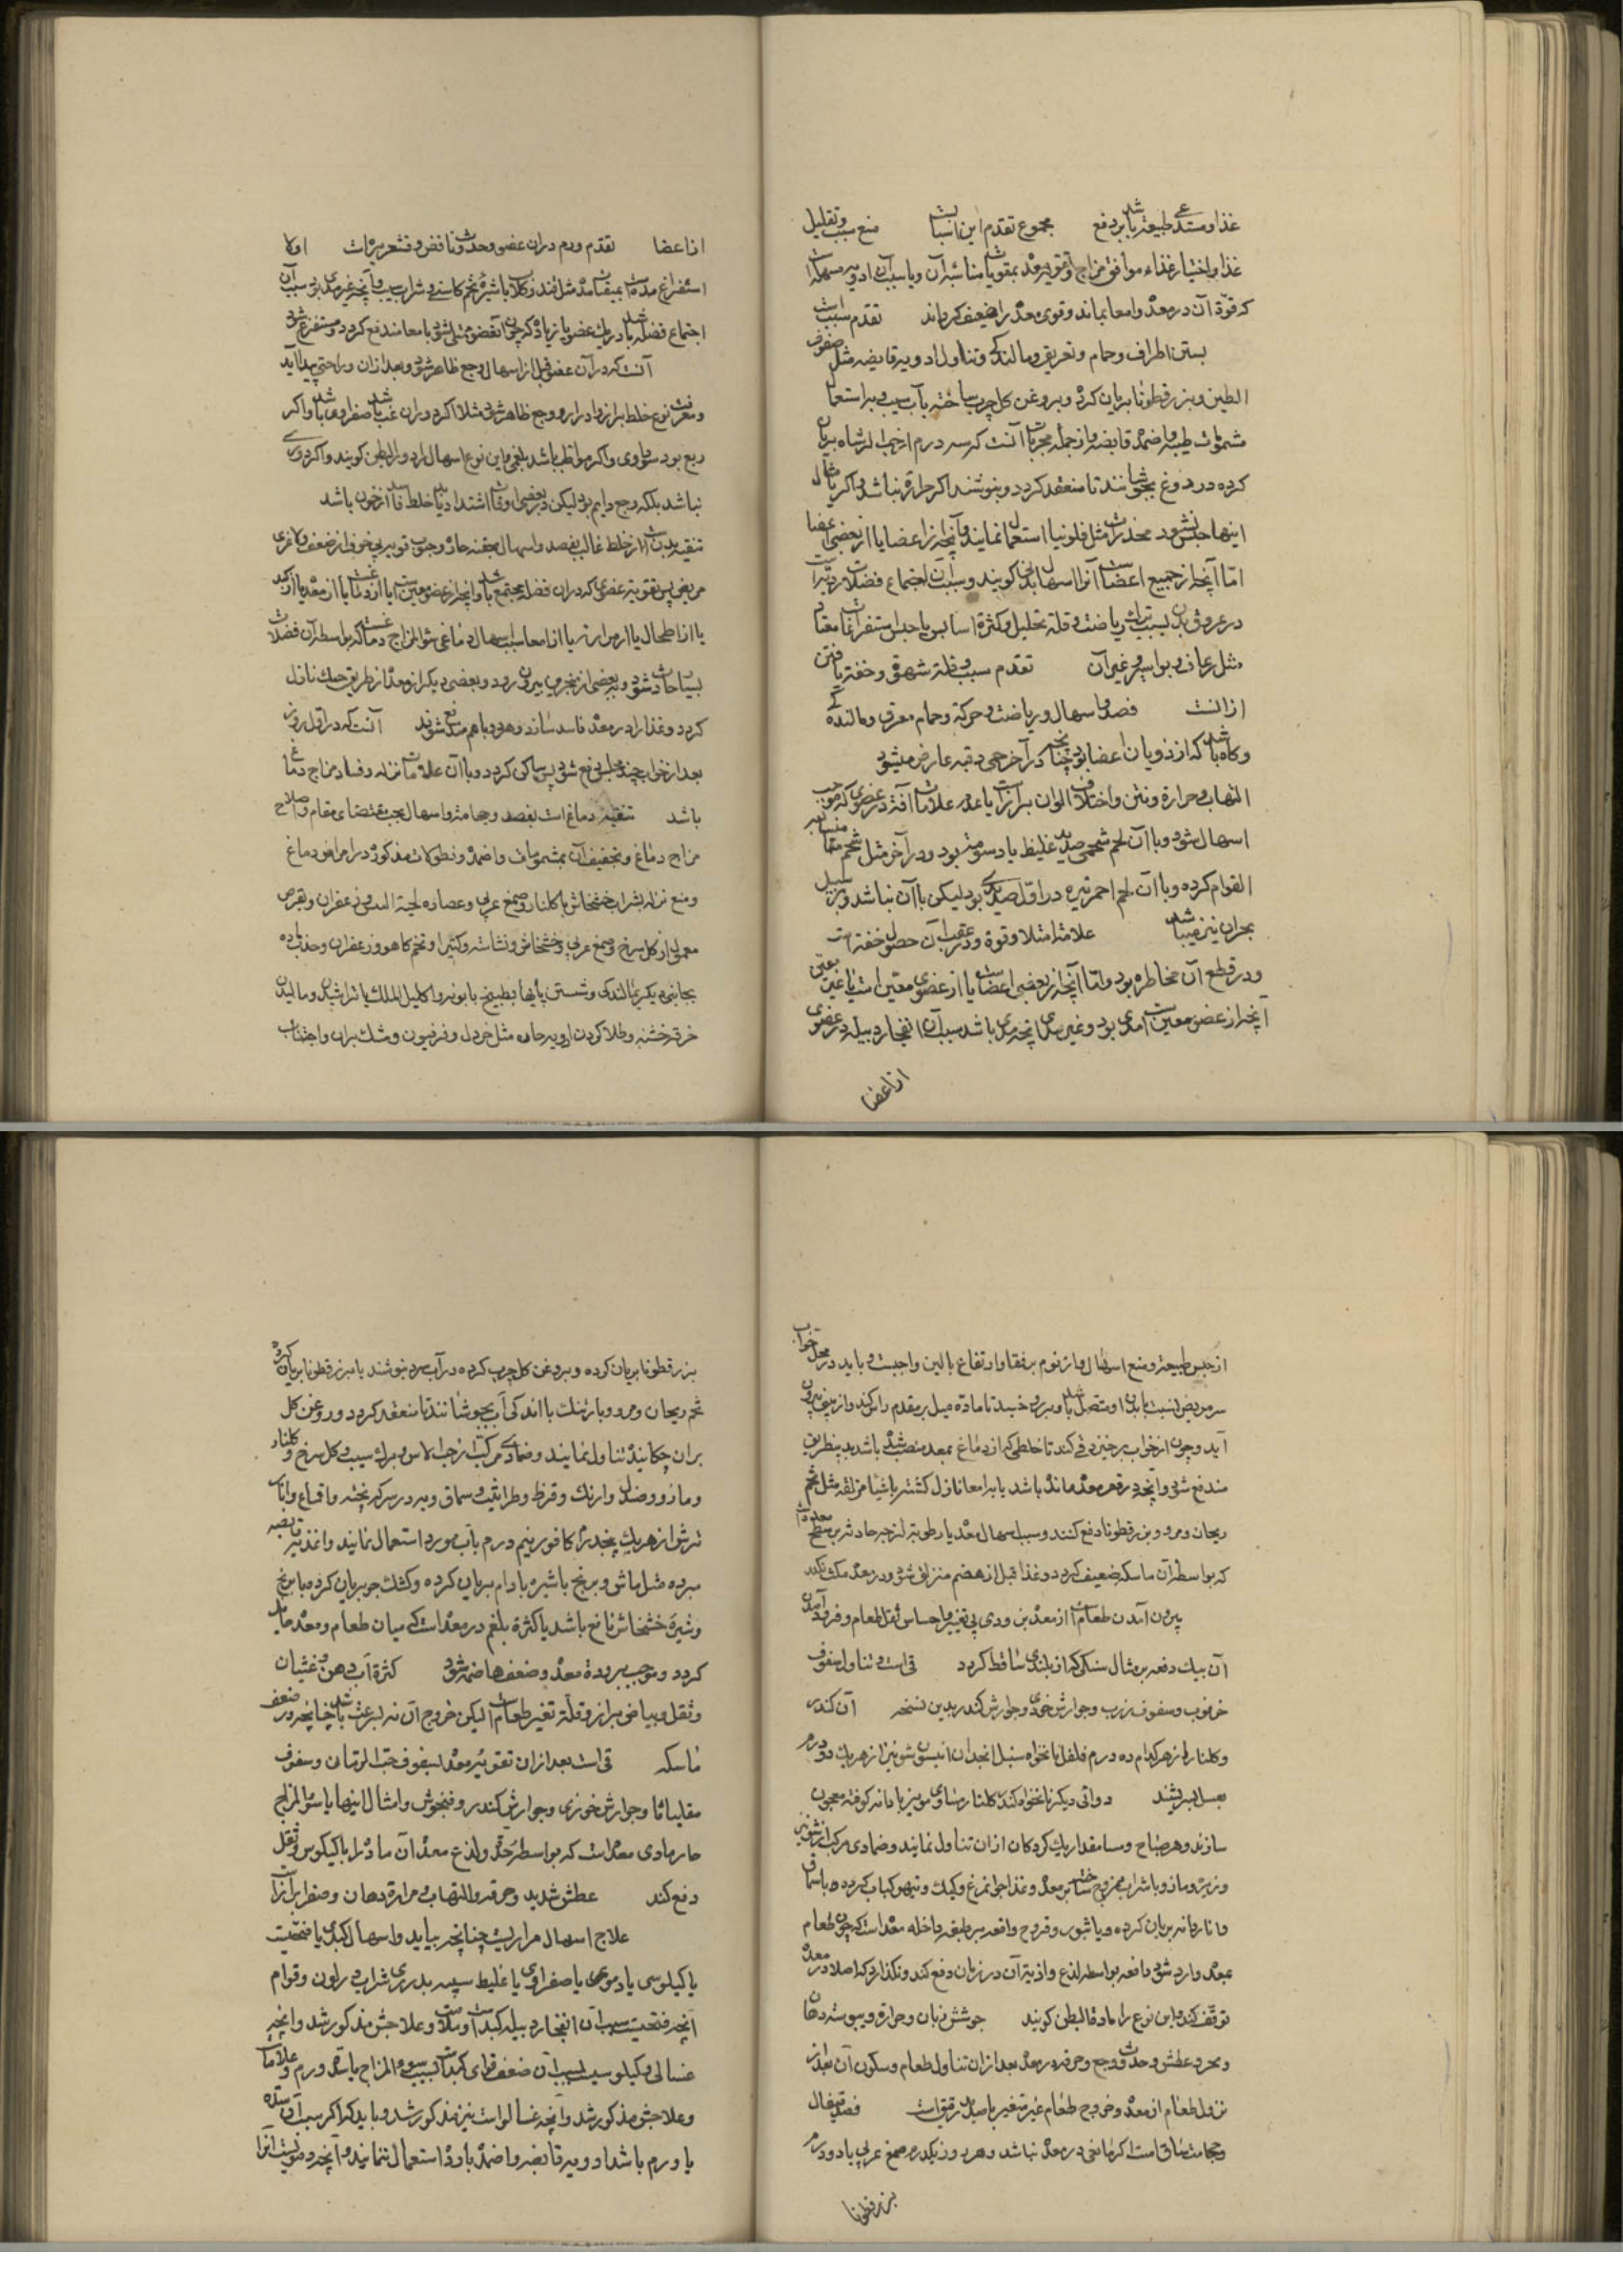 غذا و مستدعی طبیعة باشد بر دفع مجموع تقدم این اسباب منع سبب و تقلیل
غذا و اختیار غذاء موافق مزاج و تقویه معده بمقویات مناسبه آن و یا سبب آن ادویه مسهله است
که قوة آن در معده و امعا بماند و قوی معده را ضعیف گرداند تقدم سبب است
بستن اطراف و حمام و تعریق و مالندگی و تناول ادویه قابضه مثل سفوف
الطین و بزرقطونا بریان کرده و بروغن گل چرب ساخته بآب سیب و به استعمال
شمومات طیبه و اضمده قابضه و از جمله مجربات آنست که سه درم از حب الرشاد بریان
کرده در دوغ بجوشانند تا منعقد گردد و بنوشند اگر حرارة نباشد و اگر بامثال
اینها حبس نشود مخدرات مثل فلونیا استعمال نمایند و آنچه از اعضا یا از بعضی اعضا
اما آنچه از جمیع اعضاست آنرا اسهال بدنی گویند و سبب آن اجتماع فضلات ردیه است
در عروق بدن بسبب ترک ریاضت و قلة تحلیل و کثرة اسا یا حبس استفراغات معتاد
مثل رعاف و بواسیر و غیر آن تقدم سبب و قلة شهوة و خفة یافتن
از آنست فصد و اسهال و ریاضت و حرکة و حمام معرق و مالندگی
و گاه باشد که از ذوبان اعضا بود چنانچه در آخر حمی دقیه عارض میشود
التهاب و حرارة و نتن و اختلاف الوان برازست یا عدم علامات آفة در عضوی که موجب
اسهال شود و با آن لحم شحمی صدید غلیظ با دسومة بود و در آخر مثل شحم متشابه
القوام گردد و با آن لحم احمر تیره در اول صدیدی بود لیکن با آن نباشد و بر سبیل
بحران نیز میباشد علامة امتلا و قوة و در عقب آن حصول خفة است
و در قطع آن مخاطره بود و اما آنچه از بعضی اعضاست یا از عضوی معین است یا غیر معین
آنچه از عضو معین است مدی بود و غیر مدی آنچه مدی باشد سبب آن انفجار دبیله در عضوی
از اعضا
از اعضا تقدم ورم در آن عضو و حدوث نافض و قشعریره است اولا
استفراغ مده است بمنقیات مده مثل قند و گلاب با شیره تخم کاسنی و شراب سیب و آنچه غیر مدی بود سبب آن
اجتماع فضله باشد در یک عضو یا زیاده که چون آن عضو ممتلی شود بامعا مندفع گردد و مستفرغ شود
آنست که در آن عضو قبل از اسهال وجع ظاهر شود و بعد از آن راحتی پیدا آید
و معرفت نوع خلط براز و ادرار و وجع ظاهر شود مثلا اگر دوران غب باشد صفراوی باشد و اگر
ربع بود سوداوی و اگر مواظب باشد بلغمی و این نوع اسهال را دور البطن گویند و اگر دوری
نباشد بلکه وجع دایم بود لیکن در بعضی اوقات اشتداد یابد خلط فاسد از خون باشد
تنقیه بدنست از خلط غالب بفصد و اسهال بحقنه حاده و حبوب قویه بی خوف از ضعف و لاغری
مریض پس تقویه عضوی که در آن فضله مجتمع باشد و آنچه از عضو معین است یا از دماغست یا از معده یا از کبد
یا از طحال یا از مراره یا از امعا سبب اسهال دماغی سوء المزاج دماغست که بواسطه آن فضلات
بسیار حادث شود و بعضی از مخرین بیرون رود و بعضی دیگر از معده از طریق حنک نازل
گردد و غذا را در معده فاسد سازد و هر دو با هم مندفع شوند آنست که در اول روز
بعد از خواب چند مجلس دفع شود پس ساکن گردد و با آن علامات نزله و فساد مزاج دماغ
باشد تنقیه دماغست بفصد و حجامة و اسهال بحسب مقتضای مقام و اصلاح
مزاج دماغ و تجفیف آن بمشمومات و اضمده و نطولات مذکوره در امراض دماغ
و منع نزله بشراب خشخاش با گلنار و صمغ عربی و عصاره لحیة التیس و زعفران و بقرص
معمول از گل سرخ و صمغ عربی و خشخاش و نشاسته و کتیرا و تخم کاهو و زعفران و جذب ماده
بجانبی دیگر بمالندگی و شستن پایها بطبیخ بابونه و اکلیل الملک یا تراشیدن و مالیدن
خرقه خشنه و طلا کردن ادویه حاده مثل خردل و فرفیون و مشک بر آن و اجتناب
از حبس طبیعة و منع اسهال و از نوم بر قفا و ارتفاع بالین واجبست و باید در محل خواب
سر مریض نسبت ببدن او متصل باشد و برو خسبد تا ماده میل بمقدم رأس کند و از بینی بیرون
آید و چون از خواب برخیزد قی کند تا خلطی که از دماغ بمعده منصب شده باشد بدین طریق
مندفع شود و آنچه در قعر معده مانده باشد یا بامعا نازل گشته باشیاء مزلقه مثل تخم
ریحان و مرو و بزرقطونا دفع کنند و سبب اسهال معدی یا رطوبة لزجه حادثه بر سطح معده است
که بواسطه آن ماسکه ضعیف گردد و غذا قبل از هضم منزلق شود و در معده مکث نکند
بیرون آمدن طعام است از معده بزودی بی تغییر و احساس ثقل طعام و فرود آمدن
آن بیک دفعه بر مثال سنگی که از بلندی ساقط گردد قی است و تناول سفوف
خرنوب و سفوف زرب و جوارش خوزی و جوارش کندر بدین نسخه آن کندر
و گلنار از هر کدام ده درم فلفل نانخواه سنبل انجدان انیسون شونیز از هر یک دو درم
بعسل بسریشند دوائی دیگر نانخواه کندر گلنار مساوی مویز با دانه کوفته معجون
سازند و هر صباح و مسا مقدار یک گردکان از آن تناول نمایند و ضمادی مرکب از شونیز
و زیره و مازو با شراب ممزوج ساخته بر معده و غذا جوانمرغ و کبک و تیهو کباب کرده باسماق
و ناردانه بریان کرده و یا بثور و قروح واقعه بر طبقه داخله معده است که چون طعام
بمعده وارد شود دافعه بواسطه لذع و اذیة آن در زمان دفع کند و نگذارد که اصلا در معده
توقف کند و این نوع را ماده البطن گویند جوشش زبان و حرارة و یبوسة دهان
و بخر و عطش و حدوث وجع و حرقه در معده بعد از تناول طعام و سکون آن بعد از
نزول طعام از معده و خروج طعام غیر متغیر با صدید رقیق است فصد قیفال
و حجامت ساق است اگر مانعی در معده نباشد و هر روز یکدرم صمغ عربی با دو درم
بزرقطونا
بزرقطونا بریان کرده و بروغن گل چرب کرده در آب سرد بنوشند یا بزرقطونا بریان کرده
تخم ریحان و مرو و بارتنگ با اندکی آب بجوشانند تا منعقد گردد و روغن گل
بر آن چکانیده تناول نمایند و ضمادی مرکب از حب الآس و برگ سیب و گل سرخ و گلنار
و مازو و صندل و ارنک و قرظ و طراثیث و سماق و به در سرکه پخته و اقماع و انار
ترش از هر یک پنجدرم کافور نیم درم بآب مورد استعمال نمایند و اغذیه قابضه
مبرده مثل ماش و برنج با شیره بادام بریان کرده و کشک جو بریان کرده با برنج
و شیره خشخاش نافع باشد یا کثرة بلغم در معده است که میان طعام و معده حایل
گردد و موجب برودة معده و ضعف هاضمه شود کثرة آب دهن و غثیان
و ثقل و بیاض براز و قلة تغیر طعام است لیکن خروج آن نه بسرعت باشد چنانچه در ضعف
ماسکه قی است بعد از آن تقویه معده بسفوف حب الرمان و سفوف
مقلیاثا و جوارش خوزی و جوارش کندر و فنجنوش و امثال اینها یا سوء المزاج
حار مادی معده است که بواسطه حدة و لذع معده آن ماده را با کیلوس و ثقل
دفع کند عطش شدید و حرقه و التهاب و مرارة دهان و صفرا برازست
علاج اسهال مراریست چنانچه بیاید و اسهال کبدی یا قیحیست
یا کیلوسی یا دموی یا صفراوی یا غلیظ سیه بدردی شراب در لون و قوام
آنچه قیحیست سبب آن انفجار دبیله کبد است و علامات و علاجش مذکور شد و آنچه
غسالی و کیلوسیست سبب آن ضعف قوای کبدست بسبب سوء المزاج یا سده یا ورم و علامات
و علاجش مذکور شد و آنچه غسالی است نیز مذکور شد و باید که اگر سبب آن سده
یا ورم باشد ادویه قابضه و اضمده بارده استعمال ننمایند و آنچه دمویست آنرا